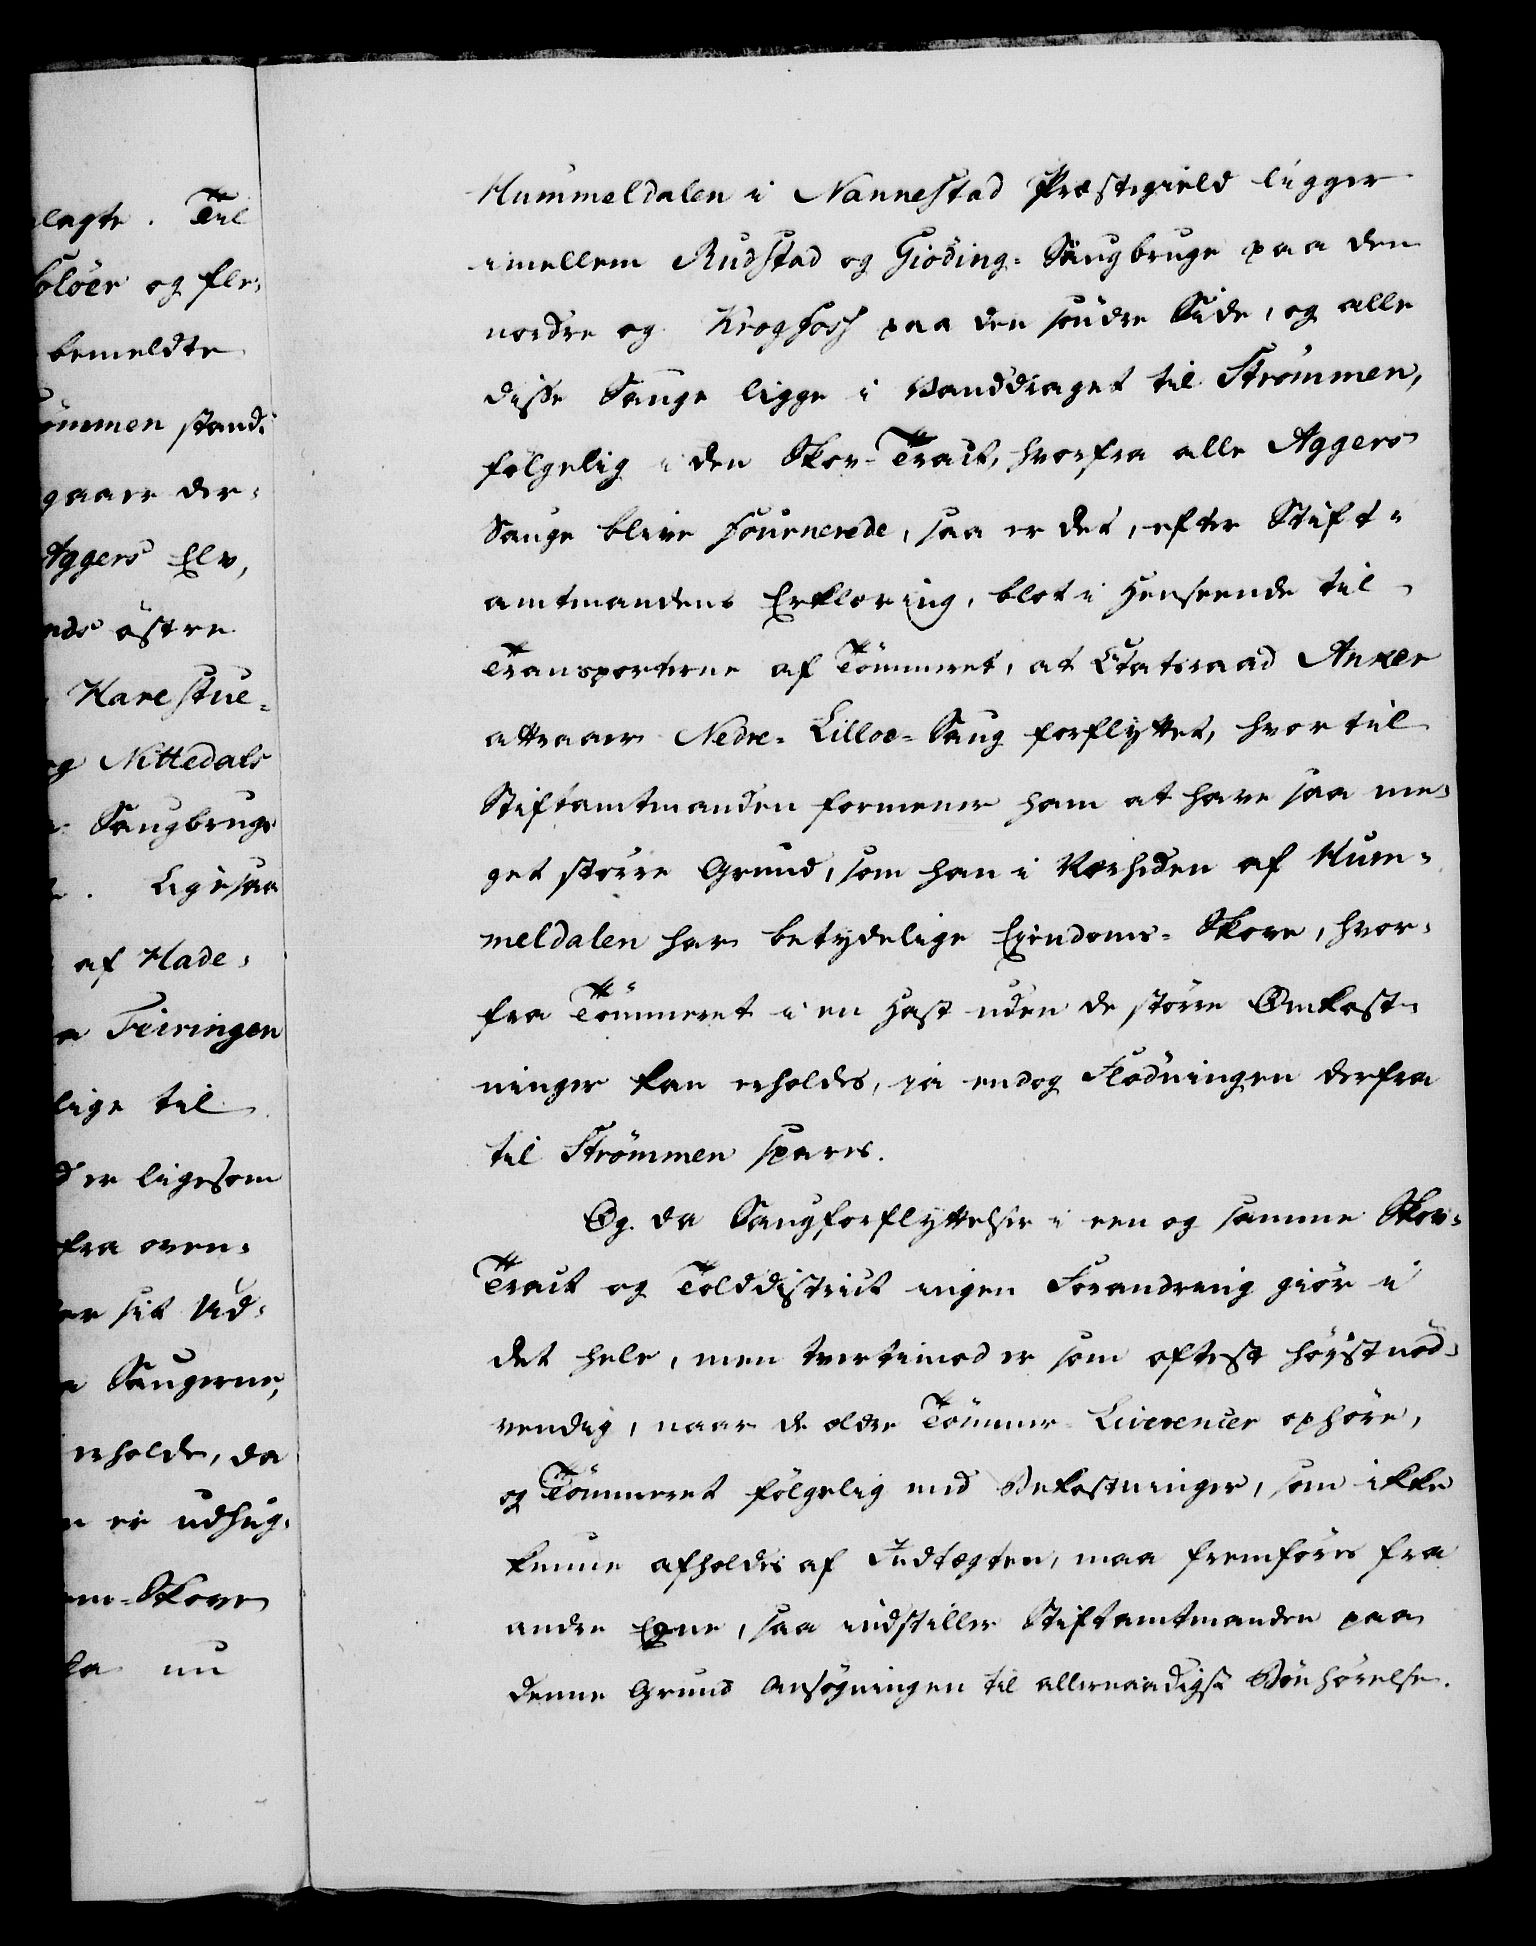 lagte. Til
soloer og fle-
bemeldte
ömmen stand-
gaaer der-
Aggers Elv,
nds östre
Harestue-
og Nittedals
Saugbrug-
Ligesaa
af Hade-
Feiringen
lige til
er ligesom
fra oven-
er sit Ud-
Saugerne,
erholde, da
er udhug-
Skove
nu
Hummeldalen i Nannestad Præstegield ligger
imellem Rudstad og Giöding-Saugbruge paa den
nordre og Krogfoss paa den söndre Side, og alle
disse Sauge ligge i Vanddraget til Strömmen,
fölgelig i den Skov-Tract, hvorfra alle Aggers
Sauge blive fournerede, saa er det, efter Stift-
amtmandens Erklæring, blot i Henseende til
Transporterne af Tömmeret, at Etatsraad Anker
attraaer Nedre-Lilloe-Saug forflyttet, hvortil
Stiftamtmanden formener ham at have saa me-
get större Grund, som han i Nærheden af Hum-
meldalen har betydelige Eiendoms-Skove, hvor-
fra Tömmeret i en Hast uden de större Omkost-
ninger kan erholdes, ja endog Flödningen derfra
til Strömmen spares.
Og da Saugforflyttelser i een og samme Skov-
Tract og Tolddistrict ingen Forandring giör i
det hele, men tvertimod er som oftest höjstnöd-
vendig, naar de ældre Tömmer-Liverencer ophöre,
og Tömmeret fölgelig med Bekostninger, som ikke
kunne afholdes af Indtægten, maa fremföres fra
andre Egne, saa indstiller Stiftamtmanden paa
denne Grund Ansögningen til allernaadigst Bönhörelse.